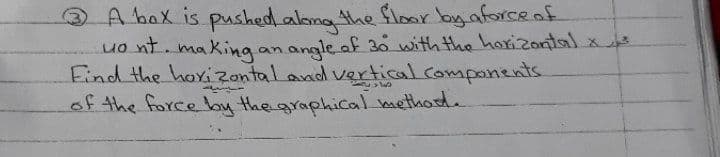 ③ A box is pushed along the floor by a force of
40 nt. making an angle of 30° with the horizontal x
Find the horizontal and vertical components
of the force by the graphical method.